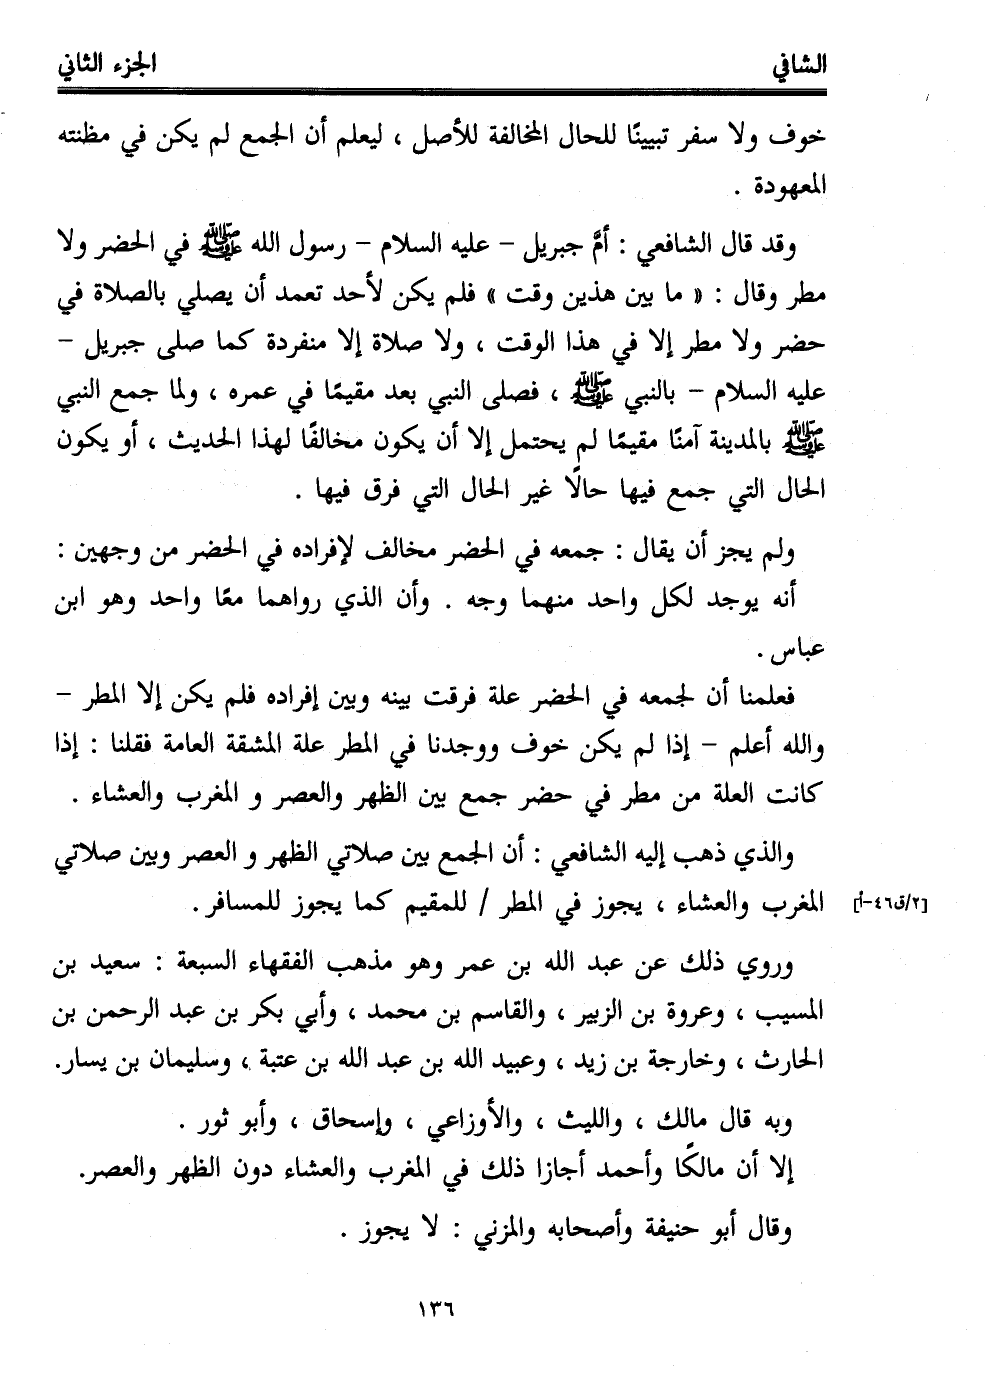 الشافي
الجزء الثاني
خوف ولا سفر تبيينًا للحال المخالفة للأصل ، ليعلم أن الجمع لم يكن في مظنته
المعهودة .
وقد قال الشافعي : أمَّ جبريل – عليه السلام – رسول الله ﷺ في الحضر ولا
مطر وقال : « ما بين هذين وقت » فلم يكن لأحد تعمد أن يصلي بالصلاة في
حضر ولا مطر إلا في هذا الوقت ، ولا صلاة إلا منفردة كما صلى جبريل –
عليه السلام – بالنبي ﷺ ، فصلى النبي بعد مقيمًا في عمره ، ولما جمع النبي
ﷺ بالمدينة آمنًا مقيمًا لم يحتمل إلا أن يكون مخالفًا لهذا الحديث ، أو يكون
الحال التي جمع فيها حالًا غير الحال التي فرق فيها .
ولم يجز أن يقال : جمعه في الحضر مخالف لإفراده في الحضر من وجهين :
أنه يوجد لكل واحد منهما وجه . وأن الذي رواهما معًا واحد وهو ابن
عباس .
فعلمنا أن لجمعه في الحضر علة فرقت بينه وبين إفراده فلم يكن إلا المطر –
والله أعلم – إذا لم يكن خوف ووجدنا في المطر علة المشقة العامة فقلنا : إذا
كانت العلة من مطر في حضر جمع بين الظهر والعصر و المغرب والعشاء .
والذي ذهب إليه الشافعي : أن الجمع بين صلاتي الظهر و العصر وبين صلاتي
المغرب والعشاء ، يجوز في المطر / للمقيم كما يجوز للمسافر .
[٢/ق٤٦-أ]
وروي ذلك عن عبد الله بن عمر وهو مذهب الفقهاء السبعة : سعيد بن
المسيب ، وعروة بن الزبير ، والقاسم بن محمد ، وأبي بكر بن عبد الرحمن بن
الحارث ، وخارجة بن زيد ، وعبيد الله بن عبد الله بن عتبة ، وسليمان بن يسار.
وبه قال مالك ، والليث ، والأوزاعي ، وإسحاق ، وأبو ثور .
إلا أن مالكًا وأحمد أجازا ذلك في المغرب والعشاء دون الظهر والعصر.
وقال أبو حنيفة وأصحابه والمزني : لا يجوز .
١٣٦